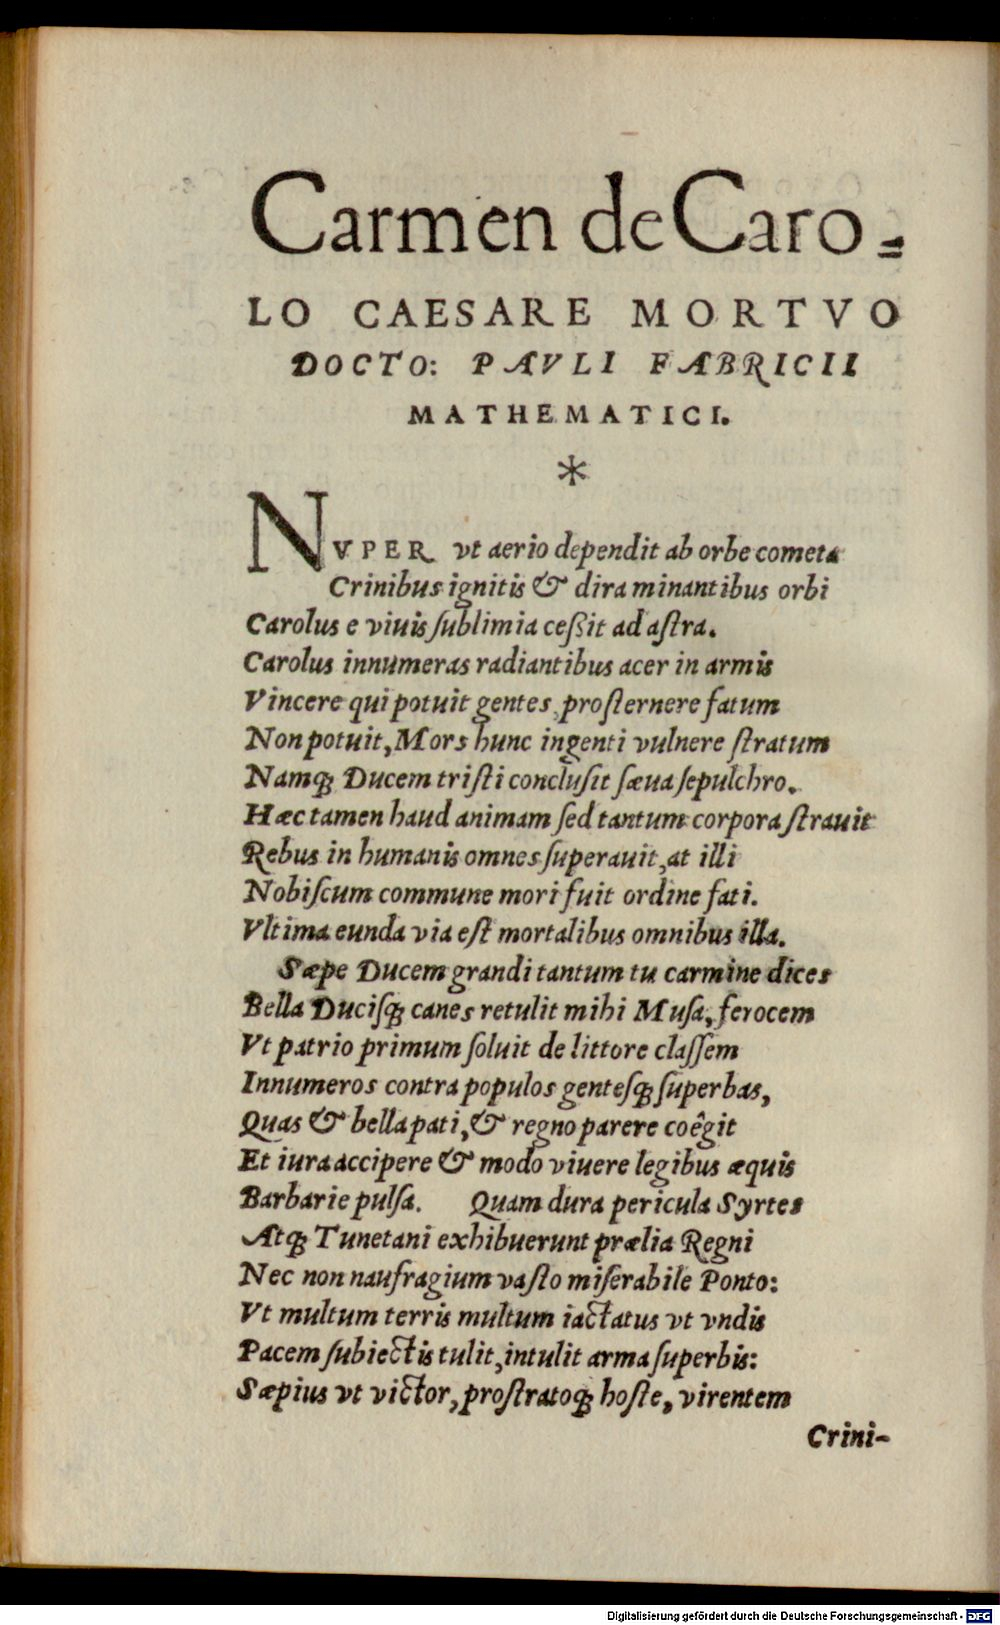 Carmen de Caro⸗
LO CAESARE MORTVO
DOCTO: PAVLI FABRICII
MATHEMATICI.
*
NVPER vt aerio dependit ab orbe cometa
Crinibus ignitis & dira minantibus orbi
Carolus e viuis ſublimia ceßit ad aſtra.
Carolus innumeras radiantibus acer in armis
Vincere qui potuit gentes, proſternere fatum
Non potuit, Mors hunc ingenti vulnere ſtratum
Namq; Ducem triſti concluſit ſæua ſepulchro.
Hæc tamen haud animam ſed tantum corpora ſtrauit
Rebus in humanis omnes ſuperauit, at illi
Nobiſcum commune mori fuit ordine fati.
Vltima eunda via eſt mortalibus omnibus illa.
Sæpe Ducem grandi tantum tu carmine dices
Bella Duciſq; canes retulit mihi Muſa, ferocem
Vt patrio primum ſoluit de littore claſſem
Innumeros contra populos genteſq; ſuperbas,
Quas & bella pati, & regno parere coêgit
Et iura accipere & modo viuere legibus æquis
Barbarie pulſa. Quam dura pericula Syrtes
Atq; Tunetani exhibuerunt prælia Regni
Nec non naufragium vaſto miſerabile Ponto:
Vt multum terris multum iactatus vt vndis
Pacem ſubiectis tulit, intulit arma ſuperbis:
Sæpius vt victor, proſtratoq; hoſte, virentem
Crini-
Digitalisierung gefördert durch die Deutsche Forschungsgemeinschaft - DFG